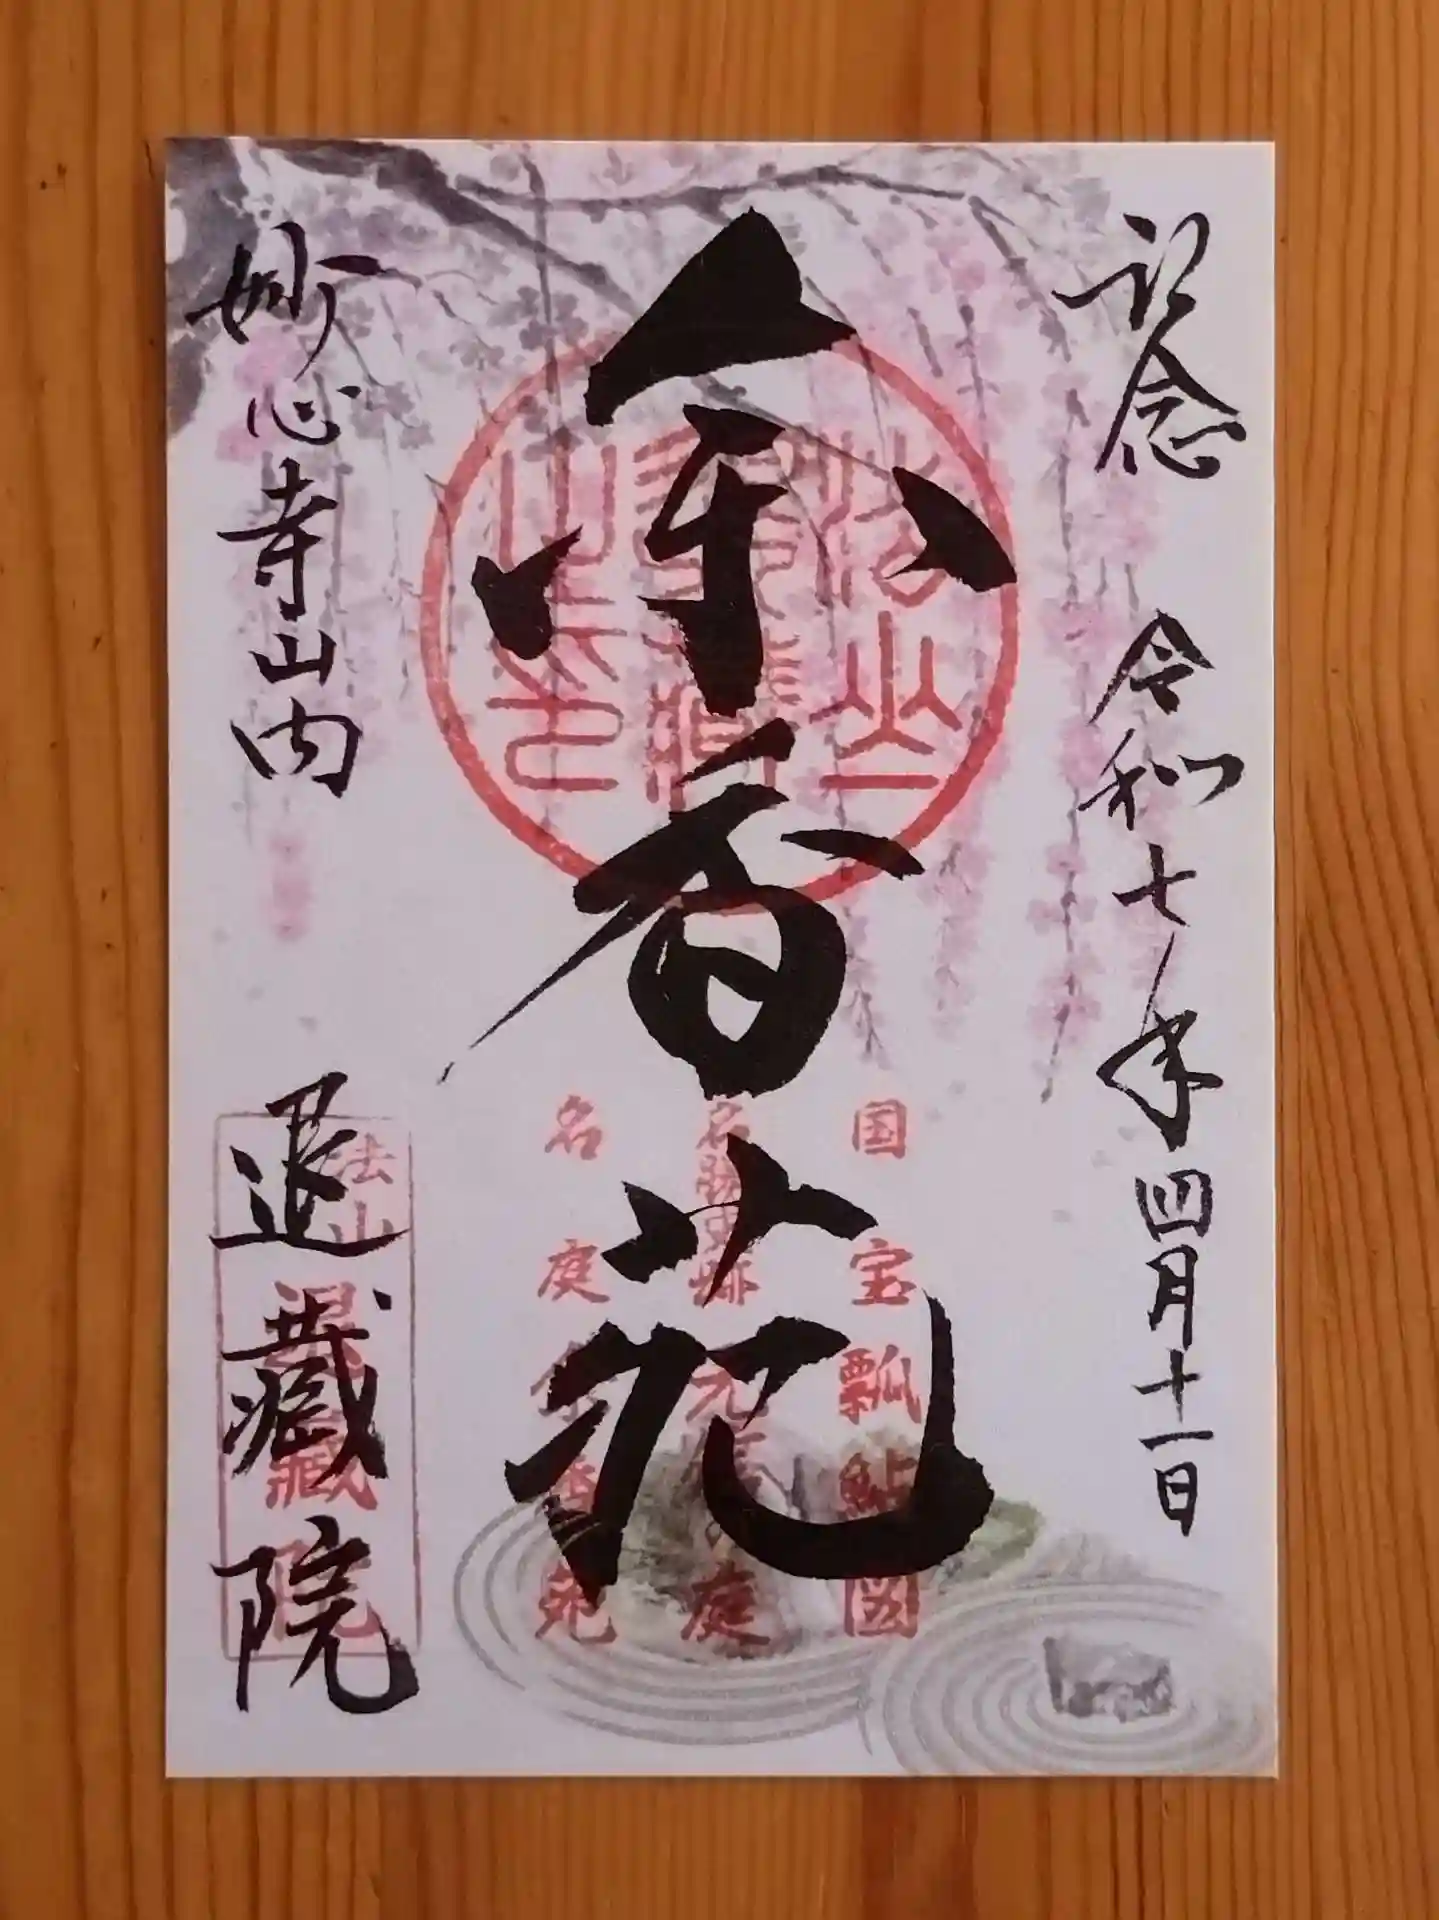 記念 令和七年四月十一日
余香苑
国宝瓢鮎図
名勝史跡元信の庭
名庭余香苑
妙心寺山内
退蔵院
法山
退蔵院